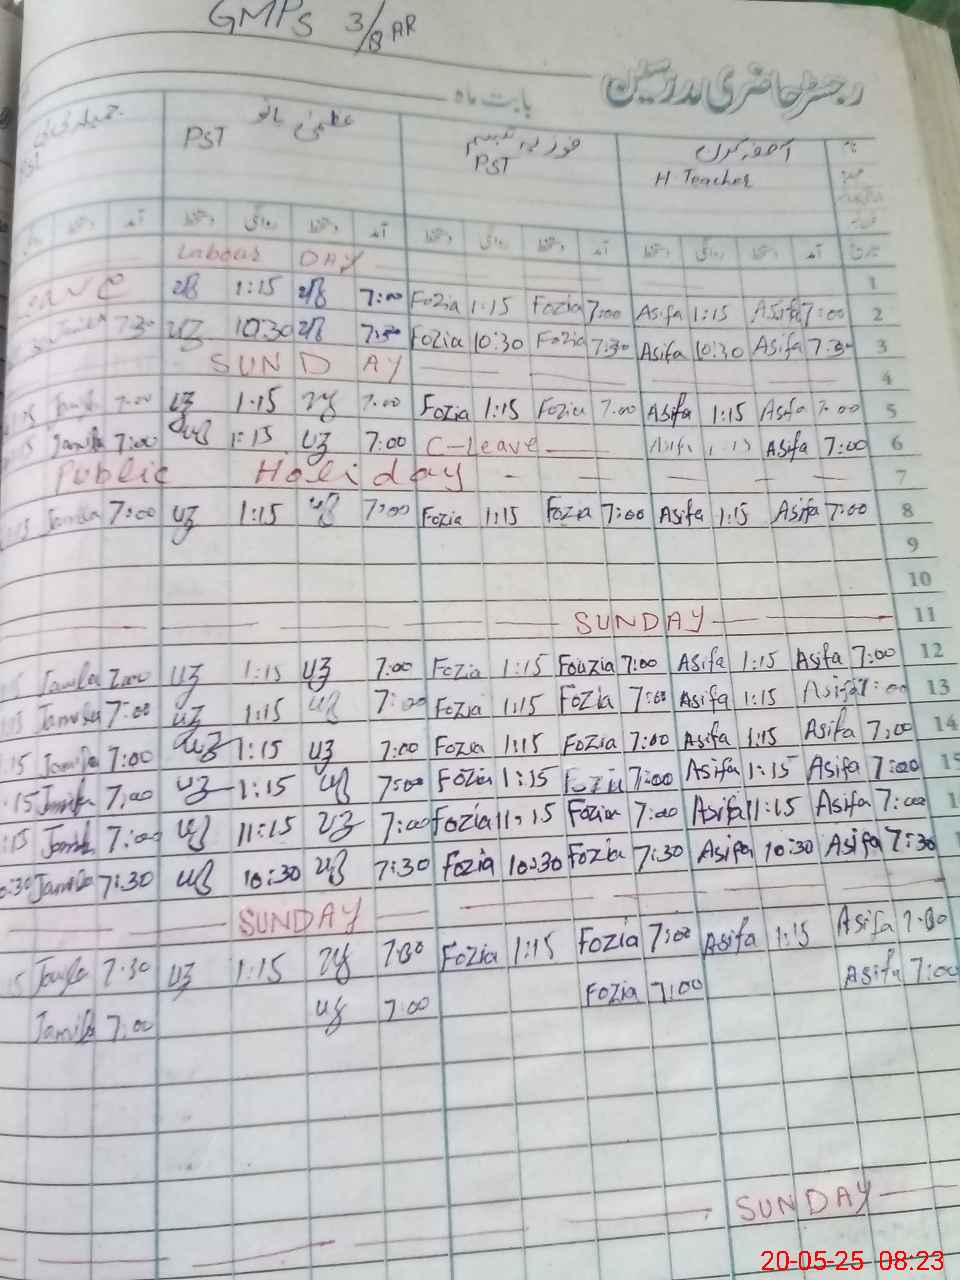 GMPS 3/8 AR
رجسٹر حاضری مدرسین
بابت ماہ
جمیلہ بی بی عظمیٰ بانو فوزیہ تبسم آصفہ کرن نام
PST PST PST H Teacher
دستخط آمد دستخط روانگی دستخط آمد دستخط روانگی دستخط آمد دستخط روانگی دستخط آمد تاریخ
Labour DAY 1
Leave 1:15 7:00 Fozia 1:15 Fozia 7:00 Asifa 1:15 Asifa 7:00 2
Jamila 7:30 UZ 10:30 7:30 Fozia 10:30 Fozia 7:30 Asifa 10:30 Asifa 7:30 3
SUNDAY 4
Jamila 7:00 UZ 1:15 7:00 Fozia 1:15 Fozia 7:00 Asifa 1:15 Asifa 7:00 5
Jamila 7:00 UZ 1:15 UZ 7:00 C-Leave Asifa 1:15 Asifa 7:00 6
Public Holiday 7
:15 Jamila 7:00 UZ 1:15 UZ 7:00 Fozia 1:15 Fozia 7:00 Asifa 1:15 Asifa 7:00 8
9
10
SUNDAY 11
Jamila 7:00 UZ 1:15 UZ 7:00 Fozia 1:15 Fouzia 7:00 Asifa 1:15 Asifa 7:00 12
:15 Jamila 7:00 UZ 1:15 UZ 7:00 Fozia 1:15 Fozia 7:00 Asifa 1:15 Asifa 7:00 13
:15 Jamila 7:00 UZ 1:15 UZ 7:00 Fozia 1:15 Fozia 7:00 Asifa 1:15 Asifa 7:00 14
:15 Jamila 7:00 UZ 1:15 UZ 7:00 Fozia 1:15 Fozia 7:00 Asifa 1:15 Asifa 7:00 15
:15 Jamila 7:00 UZ 11:15 UZ 7:00 Fozia 11:15 Fozia 7:00 Asifa 11:15 Asifa 7:00
0:30 Jamila 7:30 UZ 10:30 UZ 7:30 Fozia 10:30 Fozia 7:30 Asifa 10:30 Asifa 7:30
SUNDAY
15 Jamila 7:30 UZ 1:15 7:30 Fozia 1:15 Fozia 7:00 Asifa 1:15 Asifa 7:30
Jamila 7:00 UZ 7:00 Fozia 7:00 Asifa 7:00
SUNDAY
20-05-25 08:23